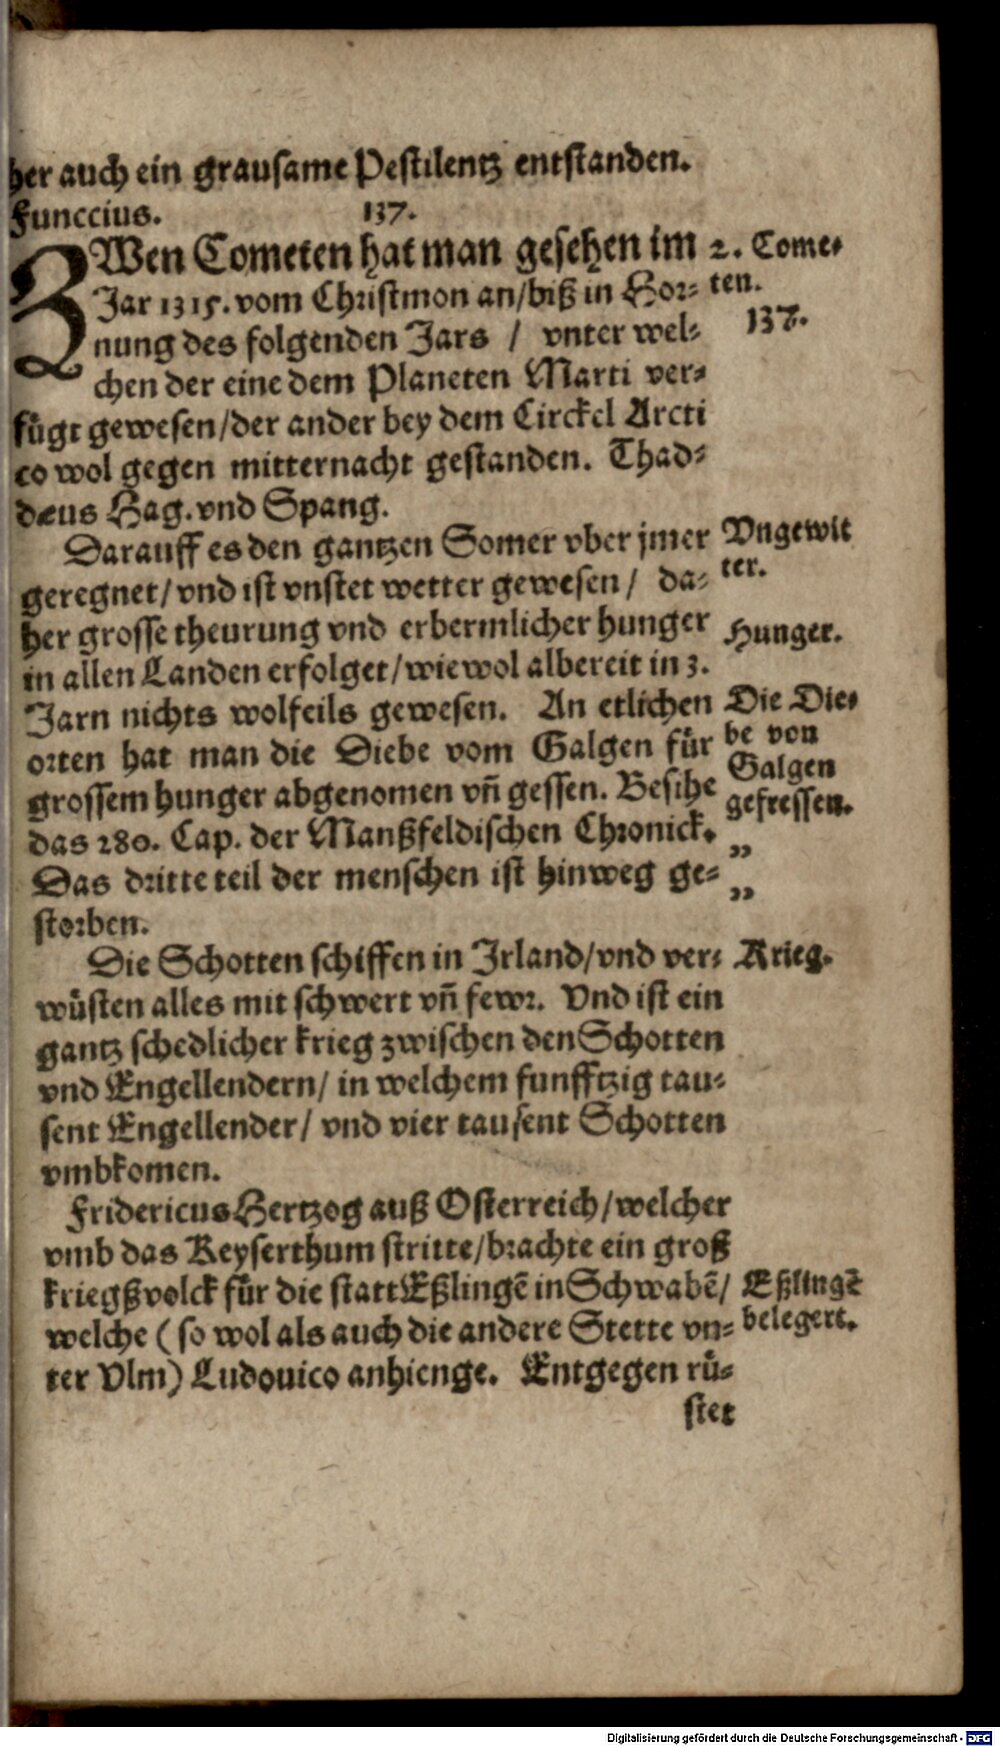 her auch ein grausame Pestilentz entstanden.
Funccius. 137.
ZWen Cometen hat man gesehen im
Jar 1315. vom Christmon an/biß in Hor⸗
nung des folgenden Jars / vnter wel⸗
chen der eine dem Planeten Marti ver⸗
fuͤgt gewesen/der ander bey dem Circkel Arcti
co wol gegen mitternacht gestanden. Thad⸗
dæus Hag. vnd Spang.
2. Come⸗
ten.
137.
Darauff es den gantzen Somer vber jmer
geregnet/vnd ist vnstet wetter gewesen/ da⸗
her grosse theurung vnd erbermlicher hunger
in allen Landen erfolget/wiewol albereit in 3.
Jarn nichts wolfeils gewesen. An etlichen
orten hat man die Diebe vom Galgen fuͤr
grossem hunger abgenomen vñ gessen. Besihe
das 280. Cap. der Manßfeldischen Chronick.
Das dritte teil der menschen ist hinweg ge⸗
storben.
Vngewit
ter.
Hunger.
Die Die⸗
be von
Galgen
gefressen.
„
„
Die Schotten schiffen in Jrland/vnd ver⸗
wuͤsten alles mit schwert vñ fewr. Vnd ist ein
gantz schedlicher krieg zwischen den Schotten
vnd Engellendern/ in welchem funfftzig tau⸗
sent Engellender/ vnd vier tausent Schotten
vmbkomen.
Krieg.
Fridericus Hertzog auß Osterreich/welcher
vmb das Keyserthum stritte/brachte ein groß
kriegßvolck fuͤr die statt Eßlingẽ in Schwabẽ/
welche (so wol als auch die andere Stette vn⸗
ter Vlm) Ludouico anhienge. Entgegen ruͤ⸗
stet
Eßlingẽ
belegert.
Digitalisierung gefördert durch die Deutsche Forschungsgemeinschaft - DFG